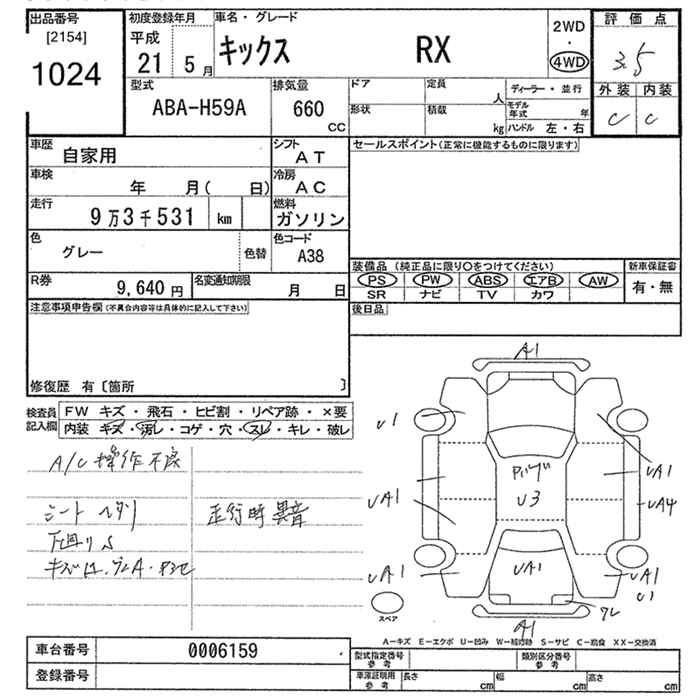 出品番号 初度登録年月 車名・グレード 2WD 評価点
[2154] 平成 ・ 3.5
1024 21 5月 キックス RX 4WD
型式 排気量 ドア 定員 人 ディーラー・並行 外装 内装
ABA-H59A 660 cc 形状 積載 kg モデル年式 年 C C
ハンドル 左・右
車歴 自家用 シフト AT セールスポイント(正常に機能するものに限ります)
車検 年 月( 日) 冷房 AC
走行 9万3千531 km 燃料 ガソリン
色 グレー 色替 色コード A38
装備品 (純正品に限り○をつけてください) 新車保証書
R券 9,640円 名変通知期限 月 日 PS PW ABS エアB AW 有・無
SR ナビ TV カワ
注意事項申告欄(不具合内容等は具体的に記入して下さい) 後日品
修復歴 有〔箇所 〕
検査員 FW キズ・飛石・ヒビ割・リペア跡・×要
記入欄 内装 キズ・汚レ・コゲ・穴・スレ・キレ・破レ
A/C 操作不良
シート ヘタリ 走行時 異音
下廻りS
A1
U1
UA1
U3
UA1
UA4
UA1
UA1
UA1
U1
ワレ
A1
スペア
A-キズ E-エクボ U-凹み W-補修跡 S-サビ C-腐食 XX-交換済
車台番号 0006159 型式指定番号 参考 類別区分番号 参考
登録番号 車庫証明用 参考 長さ cm 幅 cm 高さ cm